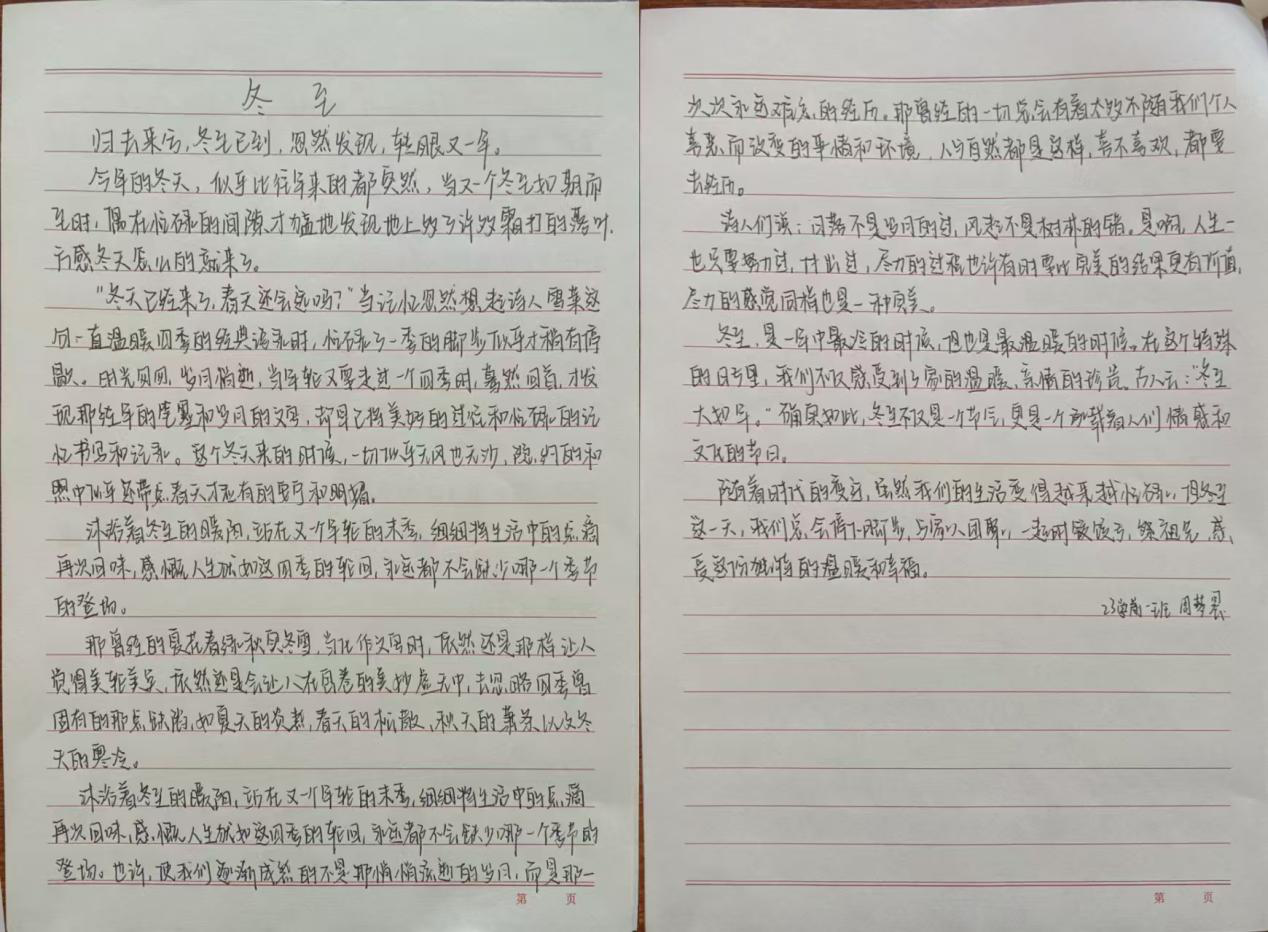 冬 至
归去来兮,冬至已到,忽然发现,转眼又一年。
今年的冬天,似乎比往年来的都突然,当又一个冬至如期而
至时,偶在忙碌的间隙才猛地发现地上多了许多霜打的落叶,
方感冬天怎么的就来了。
“冬天已经来了,春天还会远吗?”当记忆忽然想起诗人雪莱这
句一直温暖四季的经典语录时,忙碌了一季的脚步似乎才稍有停
歇。时光冉冉,岁月偷逝,当年轮又要走过一个四季时,蓦然回首,才发
现那经年的笔墨和岁月的文字,却早已将美好的过往和忙碌的记
忆书写和记录。这个冬天来的时候,一切似乎无风也无沙,隐约的和
煦中似乎还带点春天才应有的安宁和明媚。
沐浴着冬至的暖阳,站在又一个年轮的末季,细细将生活中的点滴
再次回味,感慨人生犹如这四季的轮回,永远都不会缺少哪一个季节
的登场。
那曾经的夏花春绿秋实冬雪,当化作文字时,依然还是那样让人
觉得美轮美奂,依然还是会让人在自卷的美妙虚无中,去忽略四季曾
固有的那点缺陷,如夏天的炎热,春天的松散、秋天的萧条以及冬
天的寒冷。
沐浴着冬至的暖阳,站在又一个年轮的末季,细细将生活中的点滴
再次回味,感慨人生犹如这四季的轮回,永远都不会缺少哪一个季节的
登场。也许,使我们逐渐成熟的不是那悄悄流逝的岁月,而是那一
次次永远难忘的经历。那曾经的一切总会有着太多不随我们个人
喜恶而改变的事情和环境,人与自然都是这样,喜不喜欢,都要
去经历。
诗人们说:闪落不是岁月的过,风起不是树林的错。是啊,人生一
也只要努力过,付出过,尽力的过程也许有时要比完美的结果更有价值,
尽力的感觉同样也是一种完美。
冬至,是一年中最冷的时候,但也是最温暖的时候。在这个特殊
的日子里,我们不仅感受到了家的温暖、亲情的珍贵。古人云:“冬至
大如年。”确实如此,冬至不仅是一个节气,更是一个承载着人们情感和
文化的节日。
随着时代的变迁,虽然我们的生活变得越来越忙碌,但冬至
这一天,我们总会停下脚步,与家人团聚,一起吃饺子,祭祖先,感
受这份独特的温暖和幸福。
班 周梦
第 页
第 页